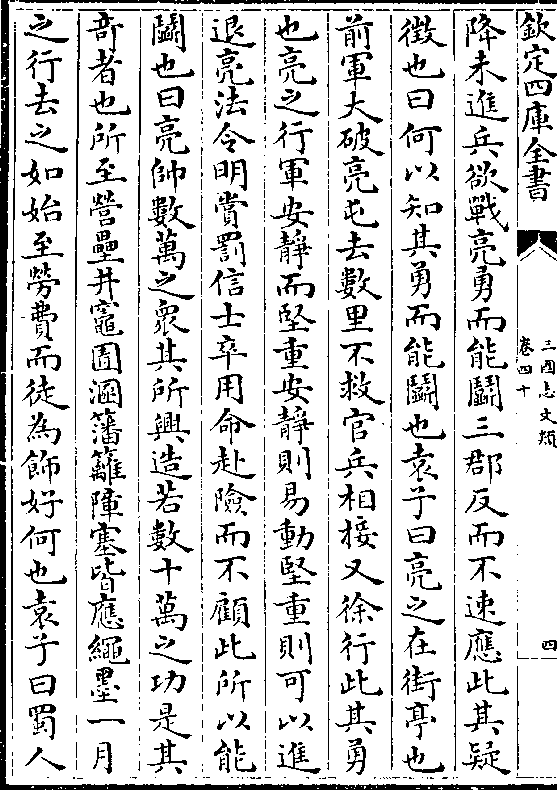 欽定四庫全書
三國志文類
卷四十
四
降未進兵欲戰亮勇而能鬬三郡反而不速應此其疑
徴也曰何以知其勇而能鬬也袁子曰亮之在街亭也
前軍大破亮屯去數里不救官兵相接又徐行此其勇
也亮之行軍安靜而堅重安靜則易動堅重則可以進
退亮法令明賞罰信士卒用命赴險而不顧此所以能
鬬也曰亮帥數萬之衆其所興造若數十萬之功是其
竒者也所至營壘井竈圊溷籓籬障塞皆應繩墨一月
之行去之如始至勞費而徒為飾好何也袁子曰蜀人